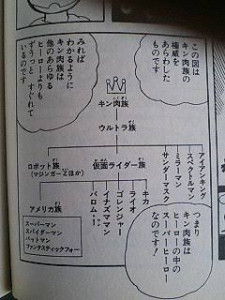 この図は
キン肉族の
権威を
あらわした
ものです
みれば
わかるように
キン肉族は
他のあらゆる
ヒーローよりも
ずうっと すぐれて
いるのです
キン肉族
ウルトラ族
ロボット族
(マジンガーZほか)
仮面ライダー族
アイアンキング
スペクトルマン
ミラーマン
サンダーマスク
キカ
ライオ
ゴレンジャー
イナズマン
バロム・1
アメリカ族
スーパーマン
スパイダーマン
バットマン
ファンタスティックフォー
つまり
キン肉族は
ヒーローの中の
スーパーヒーロー
なのです!